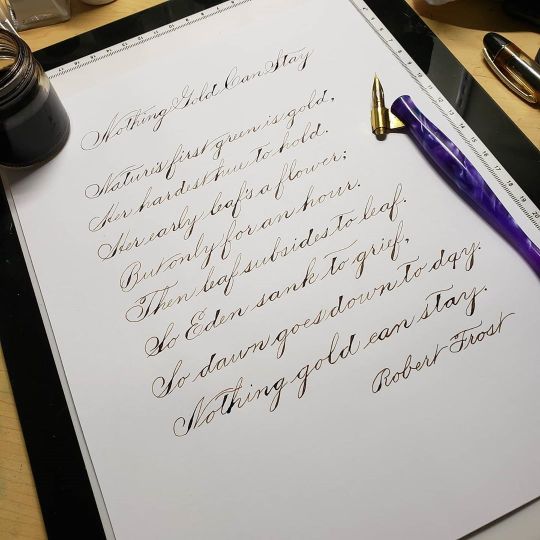 Nothing Gold Can Stay
Nature's first green is gold,
Her hardest hue to hold.
Her early leaf's a flower;
But only for an hour.
Then leaf subsides to leaf.
So Eden sank to grief,
So dawn goes down to day.
Nothing gold can stay.
Robert Frost